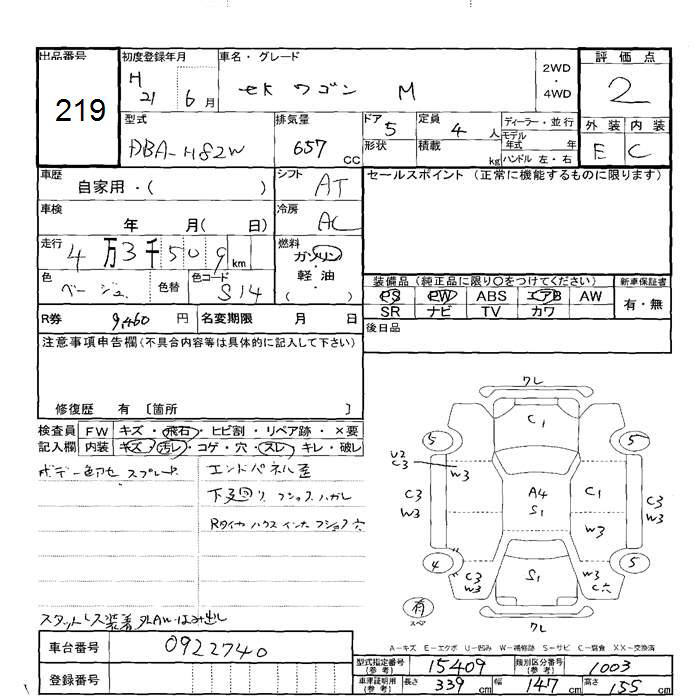 出品番号 初度登録年月 車名・グレード 評価点
219
H 21 6月
eK ワゴン M
2WD・4WD
2
型式 排気量 ドア 定員 ディーラー・並行 外装 内装
DBA-H82W 657 cc 5 4人
形状 積載 kg
モデル年式 年
ハンドル 左・右
E C
車歴 自家用・( )
シフト AT
セールスポイント(正常に機能するものに限ります)
車検 年 月( 日)
冷房 AC
走行 4万3千509km
燃料 ガソリン・軽油 ( )
色 ベージュ 色替 色コード S14
装備品(純正品に限り○をつけてください) 新車保証書
PS PW ABS エアB AW 有・無
SR ナビ TV カワ
R券 9,460円 名変期限 月 日
後日品
注意事項申告欄(不具合内容等は具体的に記入して下さい)
修復歴 有 〔箇所
検査員 FW キズ・飛石・ヒビ割・リペア跡・×要
記入欄 内装 キズ・汚レ・コゲ・穴・スレ・キレ・破レ
ボデー色アセ スプレー
エンドパネル歪
下廻り フショク ハガレ
Rタイヤハウス インナ フショク穴
ワレ
C1
5 5
U2
C3
W3
C3
W3
A4
S1
C1
W3
C3
W3
4 5
C3
W3
S1
W3
C穴
有
スペア
ワレ
スタットレス装着 外AWはみ出し
A-キズ E-エクボ U-凹み W-補修跡 S-サビ C-腐食 XX-交換済
車台番号 0922740
登録番号
型式指定番号(参考) 15409 類別区分番号(参考) 1003
車庫証明用(参考) 長さ 339cm 幅 147cm 高さ 155cm